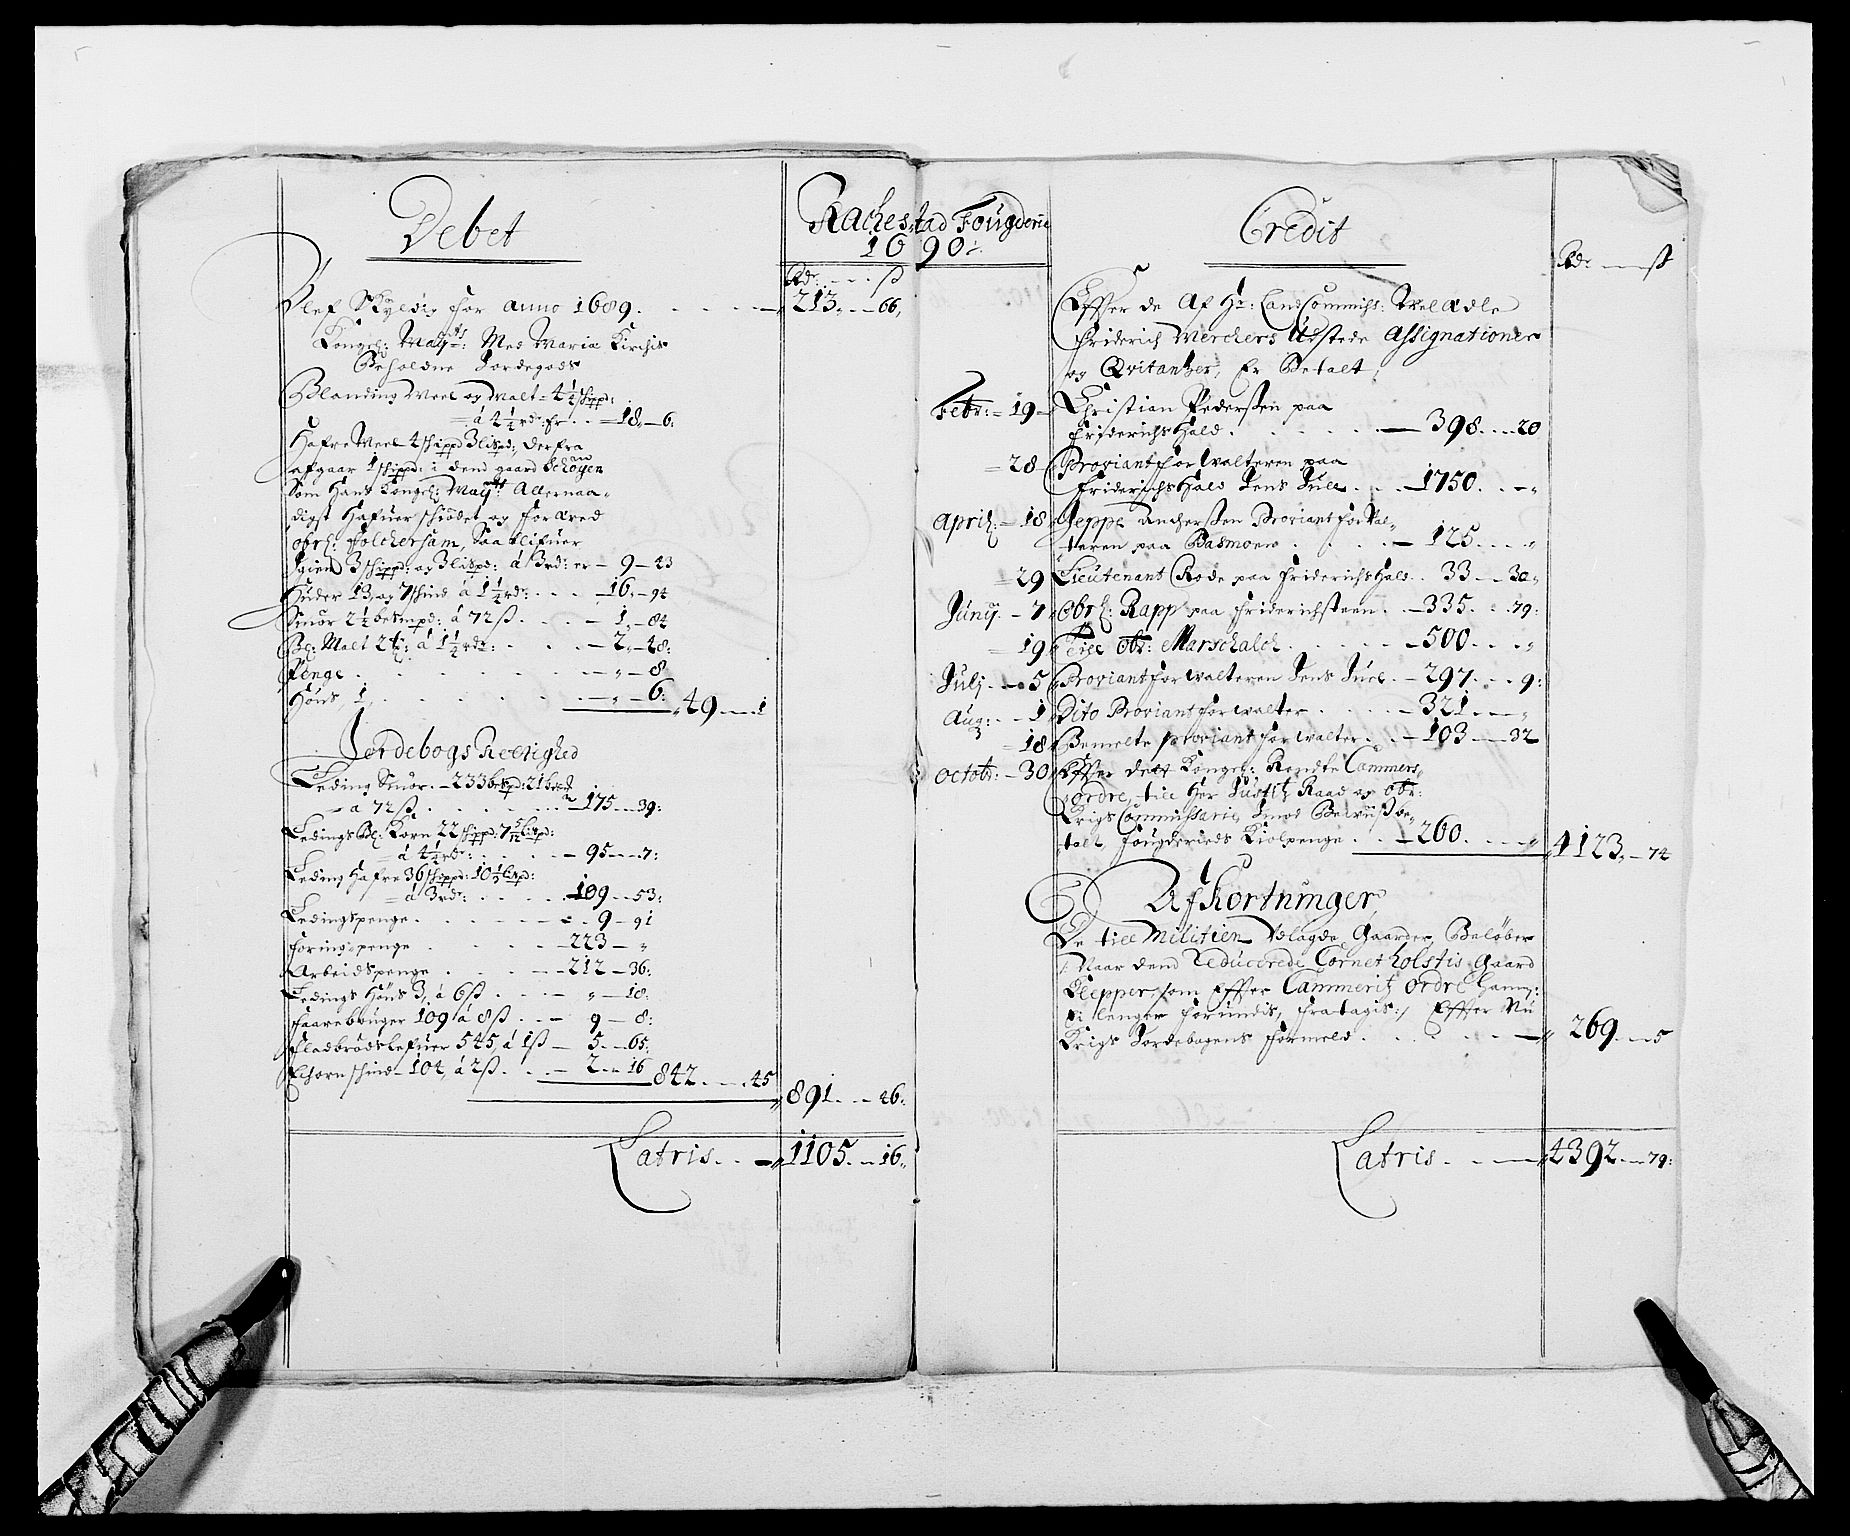 Debet
Rachestad Fougderie
1690:
Rdr. - - ß
Blef Skyldig for anno 1689. - 213. - 66.
Kongel: Mayts: Med Maria Kirchis
Beholdne Jordegods
Blanding Meel og Malt = 4 1/4 schippd:
á 4 1/4 rdr: er - 18. - 6:
Hafre Meel 4 schippd 3 lispd; derfra
afgaar 1 schippd: i dend gaard Schöyen
Som Hans Kongel: Mayts: Allernaa-
digst Hafuer schiödet og foræred
Obrl: Folchersam, Saa blifuer
Igien 3 schippd: og 3 lispd: á 3 rd: er - 9 - 43
Huder 13, og 7 schind á 1 1/4 rdr: - 16. - 94
Smör 2 1/2 besmpd: á 72 ß - 1. - 84
Bl: Malt 2 á 1 1/4 rdr: - 2. - 48:
Penge - „ - 8
Höns, 1, - „ - 6: 49 - 1
Jordebogs Rettighed
Leding Smör - 233 bpd: 21 á 72 ß - 175 - 39:
Ledings Bl: Korn 22 schippd: 7 5/12 lispd:
á 4 1/4 rdr: - 95 - 7:
Leding Hafre 36 schippd: 10 1/2 lispd:
á 3 rdr: - 109 - 53:
Ledingspenge - 9 - 91
Foringspenge - 223 - „
Arbeidspenge - 212 - 36:
Ledings Höns 3, á 6 ß - „ - 18:
Faarebouger 109 á 8 ß - 9 - 8:
Fladbrödslefuer 545, á 1 ß - 5 - 65:
Echornschind - 104, á 2 ß - 2 - 16 842 - 45
891 - 46:
Latris - 1105 - 16.
Credit
Rdr - ß
Effter de Af Hr: Landcommihs: Velædle
Friderich Merchers Udstede Assignationer
og Qvitantzer, Er Betalt;
Febr: - 19 - Christian Pederßen paa
Friderichshald - 398 - 20
28 Proviantforwalteren paa
Friderichshald Jens Juel - 1750 - „
April: - 18 Jeppe Anderßen Proviantforval-
teren paa Basmoen - 125 - „
29 Lieutenant Rode paa Friderichshald. 33 - 30.
Junij. - 7 Obrl: Rapp paa Friderichsteen - 335 - 79:
19 Till Obr: Marschalch - 500 - „
Julj - 5 Proviantforwalteren Jens Juel - 297 - 9:
Aug: - 1 Dito Proviantforwalter - 321 - „
18 Bemelte Proviantforwalter - 103 - 32
Octobr: - 30 Effter dett Kongel: Rendte Cammers,
Ordre, till Her Justitz Raad og Obr:
Krigs Commissarie be-
talt, Fougderieds Kiolpenge - 260 - „ 4123 - 74
Afkortninger
De till Militien Udlagde Gaarder, Beløber
/: Naar dend Reducerede Cornet Holstis Gaard
Klepper, som effter Cammerits ordre hannem
ei lenger forundis, fratagis:/ Effter Nu
Krigs Jordebogens formeld - 269 - 5
Latris - 4392 - 79: